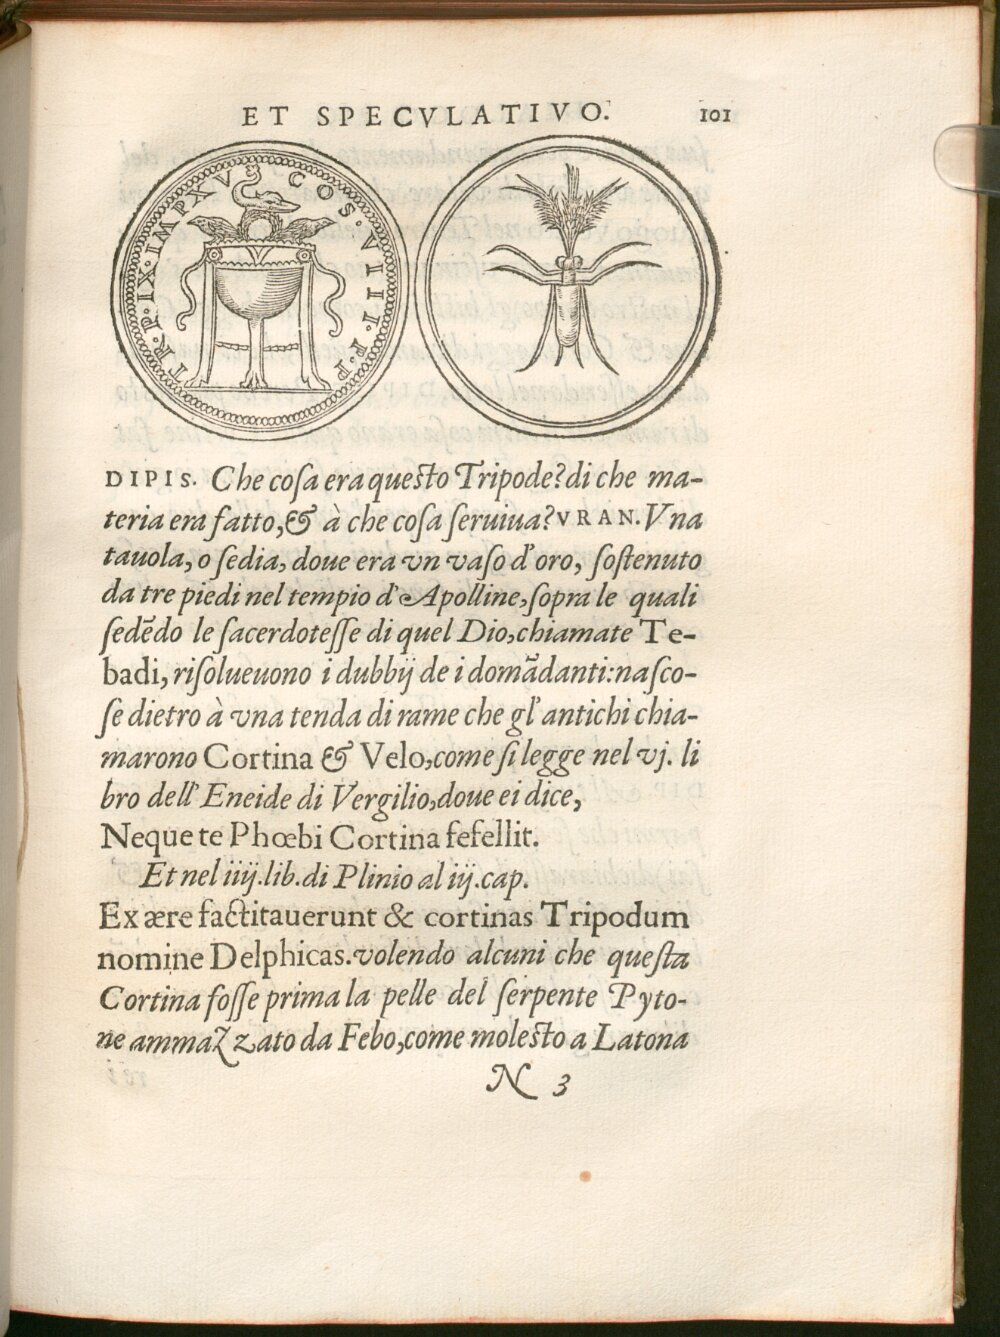 ET SPECVLATIVO. 101
TR. P. IX. IMP XV COS. VII. P. P
DIPIS. Che cosa era questo Tripode? di che ma-
teria era fatto, & à che cosa seruiua? VRAN. Vna
tauola, o sedia, doue era vn vaso d'oro, sostenuto
da tre piedi nel tempio d'Apolline, sopra le quali
sedẽdo le sacerdotesse di quel Dio, chiamate Te-
badi, risolueuono i dubbij de i domãdanti: nasco-
se dietro à vna tenda di rame che gl'antichi chia-
marono Cortina & Velo, come si legge nel vj. li
bro dell'Eneide di Vergilio, doue ei dice,
Neque te Phœbi Cortina fefellit.
Et nel iiij. lib. di Plinio al iij. cap.
Ex ære factitauerunt & cortinas Tripodum
nomine Delphicas. volendo alcuni che questa
Cortina fosse prima la pelle del serpente Pyto-
ne ammazzato da Febo, come molesto a Latona
N 3